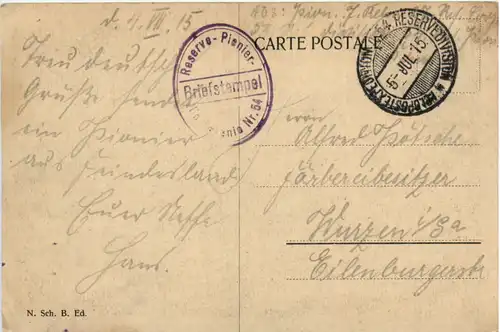 d. 4. VII. 15
Treudeutsche
Grüße sendet
ein Pionier
aus
Feindesland
Euer Neffe
Hans.
N. Sch. B. Ed.
Reserve-Pionier-
Briefstempel
Nr. 54
CARTE POSTALE
Abs: Pion.
54. RESERVEDIVISION
5 JUL. 15
Herrn
Alfred
Färbereibesitzer
Wurzen i/Sa
Eilenburgerstr